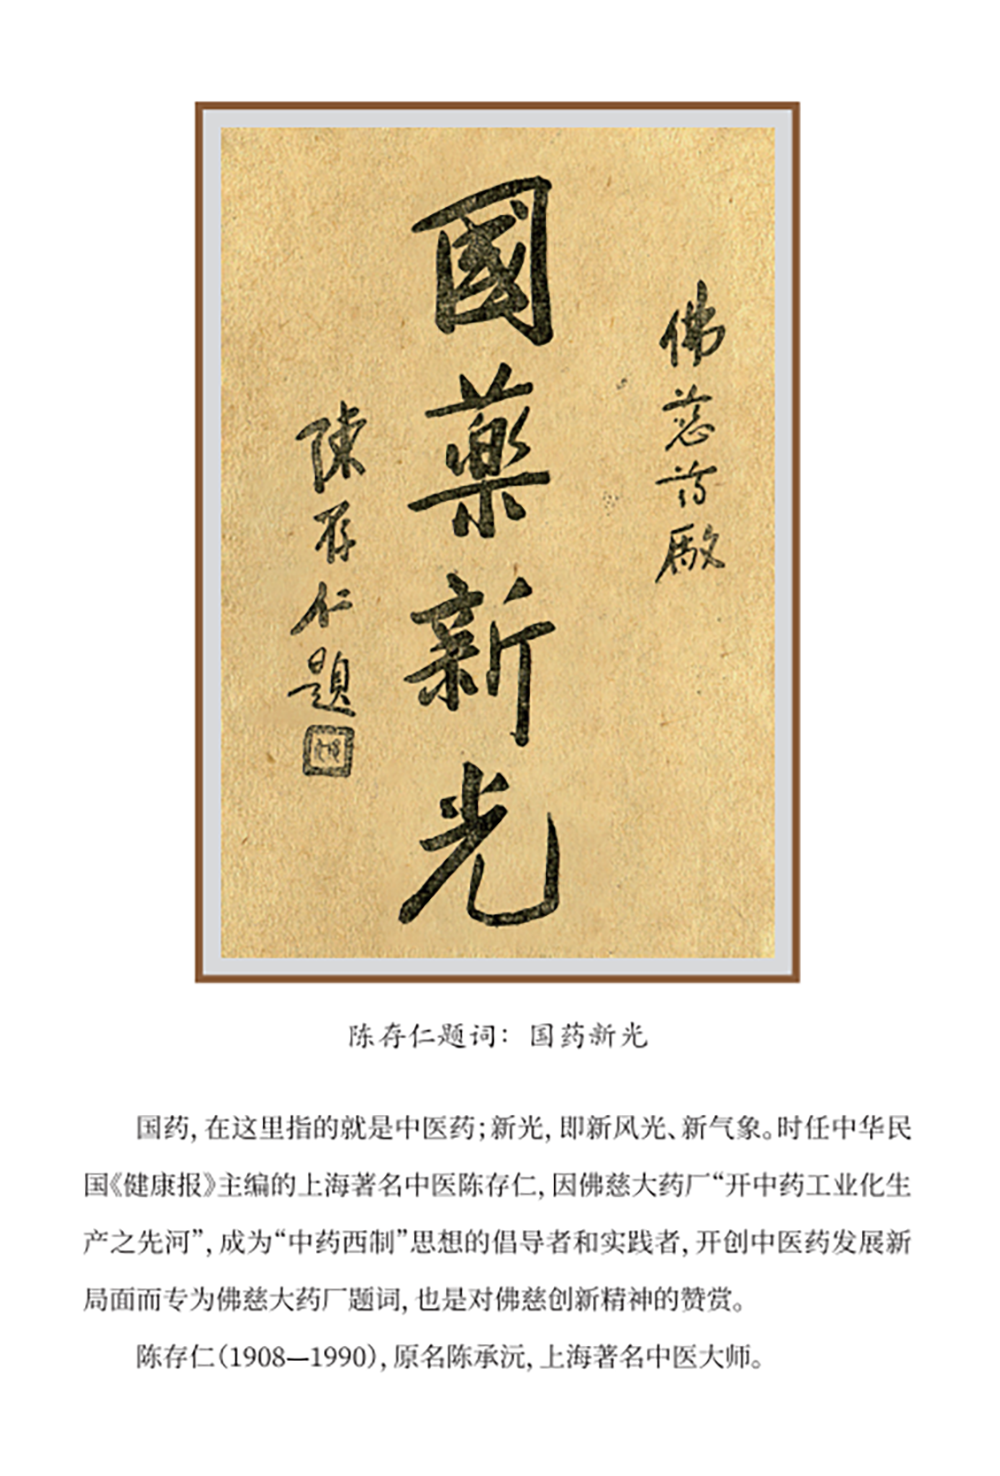 佛慈药廠
國藥新光
陳存仁題
陈存仁题词：国药新光
国药，在这里指的就是中医药；新光，即新风光、新气象。时任中华民
国《健康报》主编的上海著名中医陈存仁，因佛慈大药厂“开中药工业化生
产之先河”，成为“中药西制”思想的倡导者和实践者，开创中医药发展新
局面而专为佛慈大药厂题词，也是对佛慈创新精神的赞赏。
陈存仁（1908—1990），原名陈承沅，上海著名中医大师。